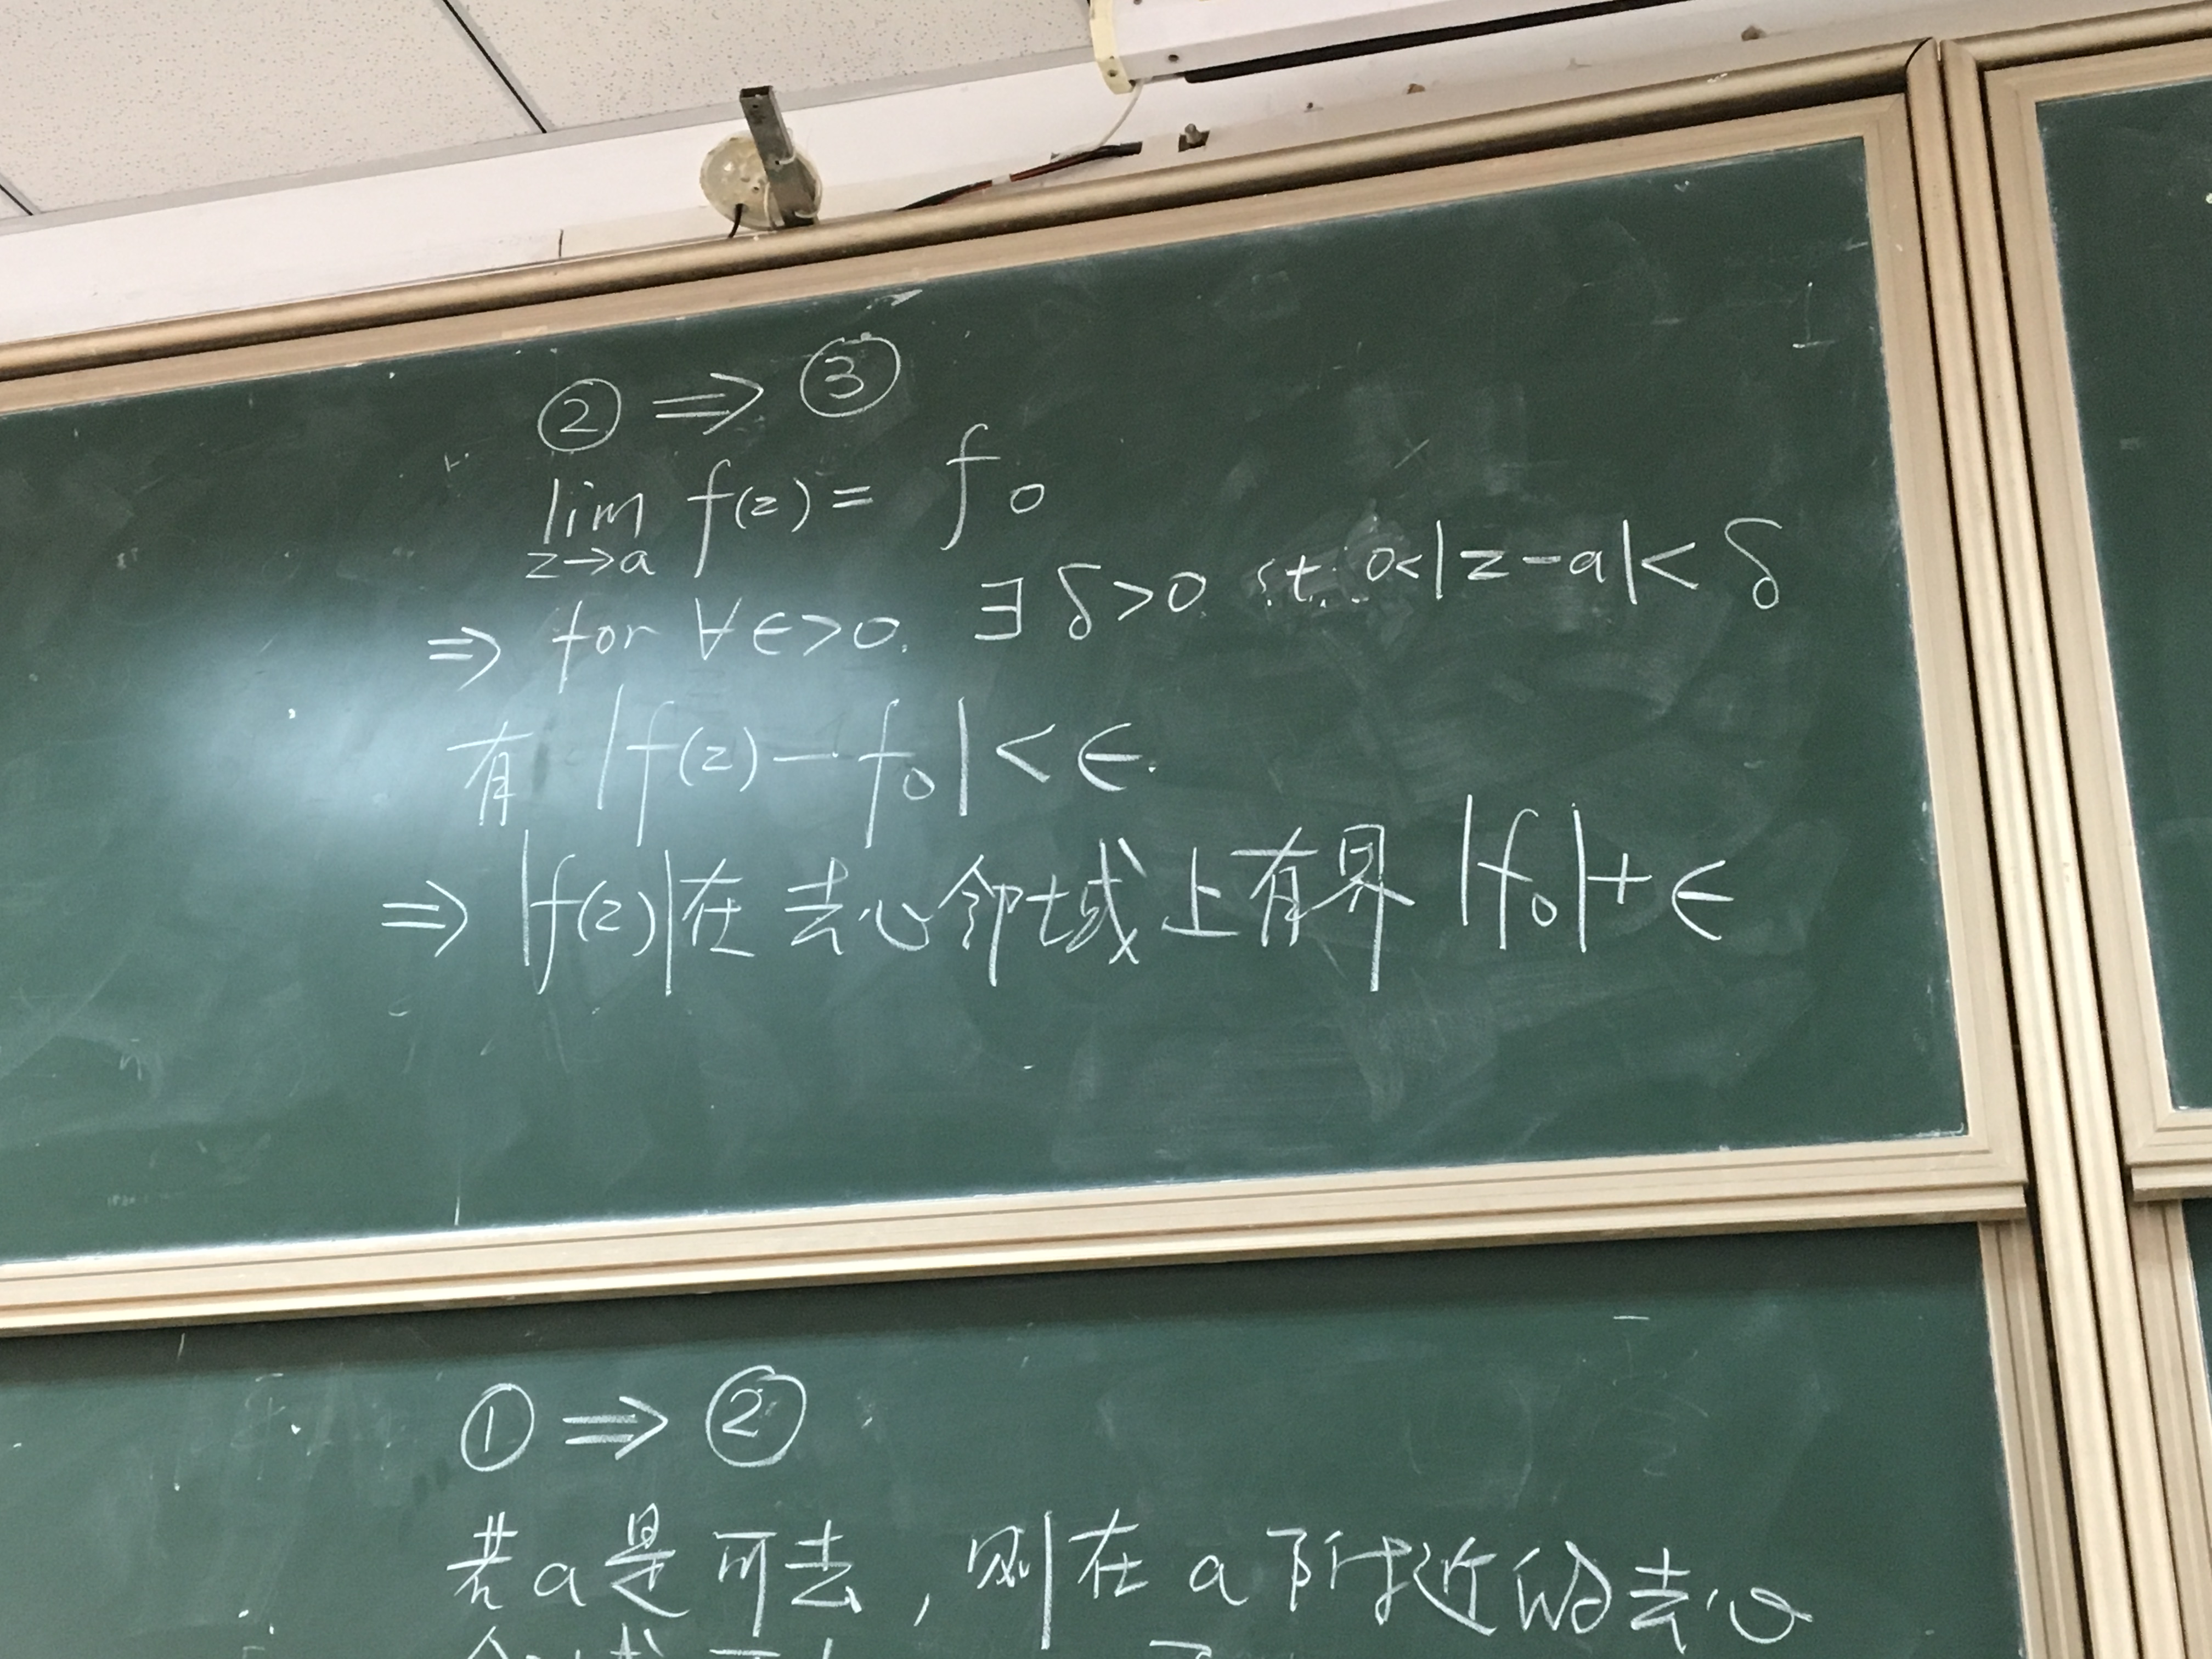 ② ⇒ ③
lim f(z) = f₀
z→a
⇒ for ∀ϵ>0. ∃ δ>0 s.t. 0<|z-a|<δ
有 |f(z)-f₀|<ϵ.
⇒ |f(z)|在去心邻域上有界 |f₀|+ϵ
① ⇒ ②
若a是可去,则在a附近的去心